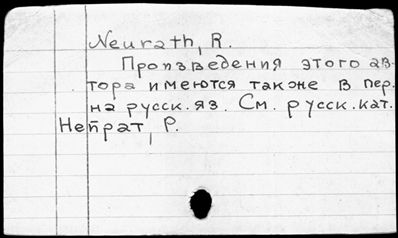 Neurath, R.
Произведения этого ав-
тора имеются также в пер.
на русск. яз. См. русск. кат.
Нейрат, Р.